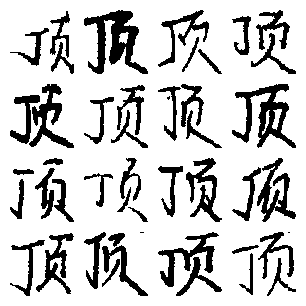 顶顶顶顶
顶顶顶顶
顶顶顶顶
顶顶顶顶